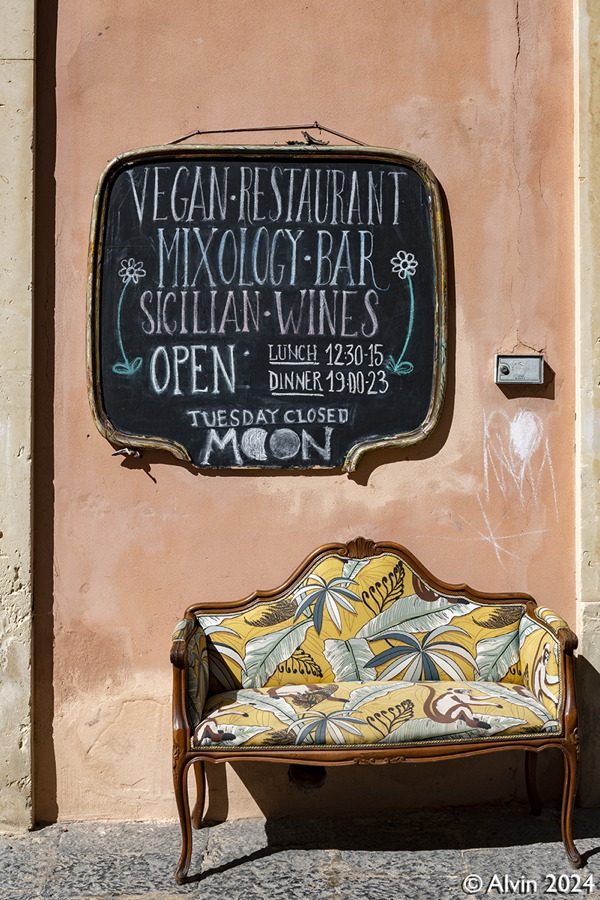 VEGAN·RESTAURANT
MIXOLOGY·BAR
SICILIAN·WINES
OPEN: LUNCH 12:30-15
DINNER 19:00-23
TUESDAY CLOSED
MOON
© Alvin 2024